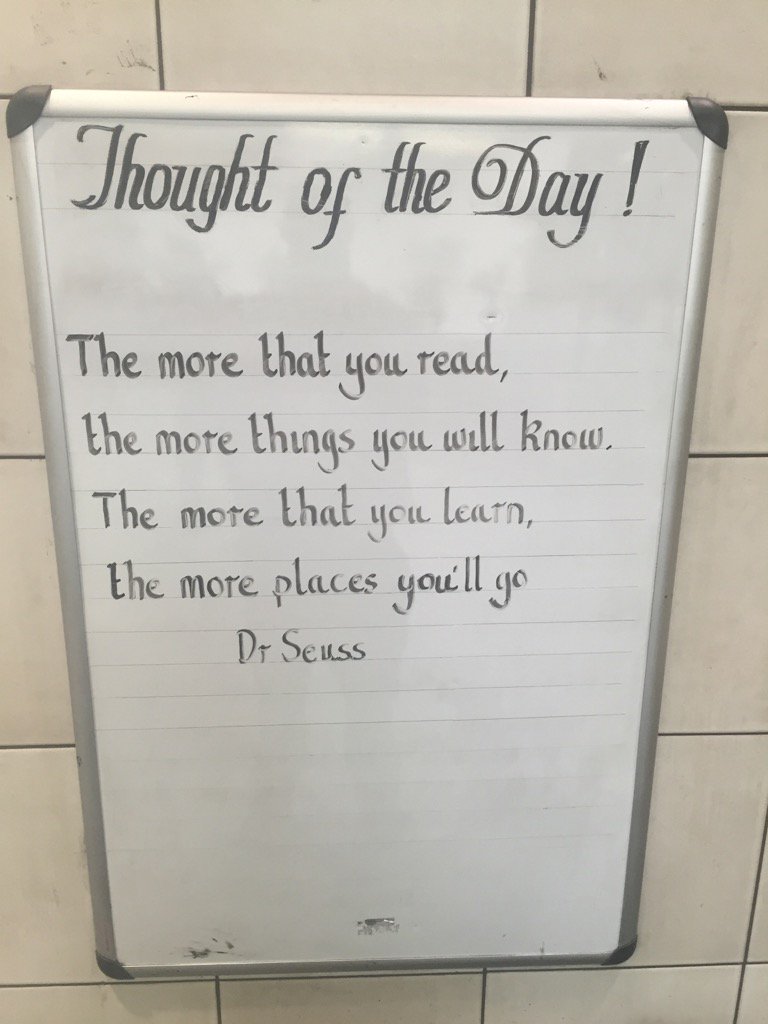 Thought of the Day !
The more that you read,
the more things you will know.
The more that you learn,
the more places you'll go
Dr Seuss